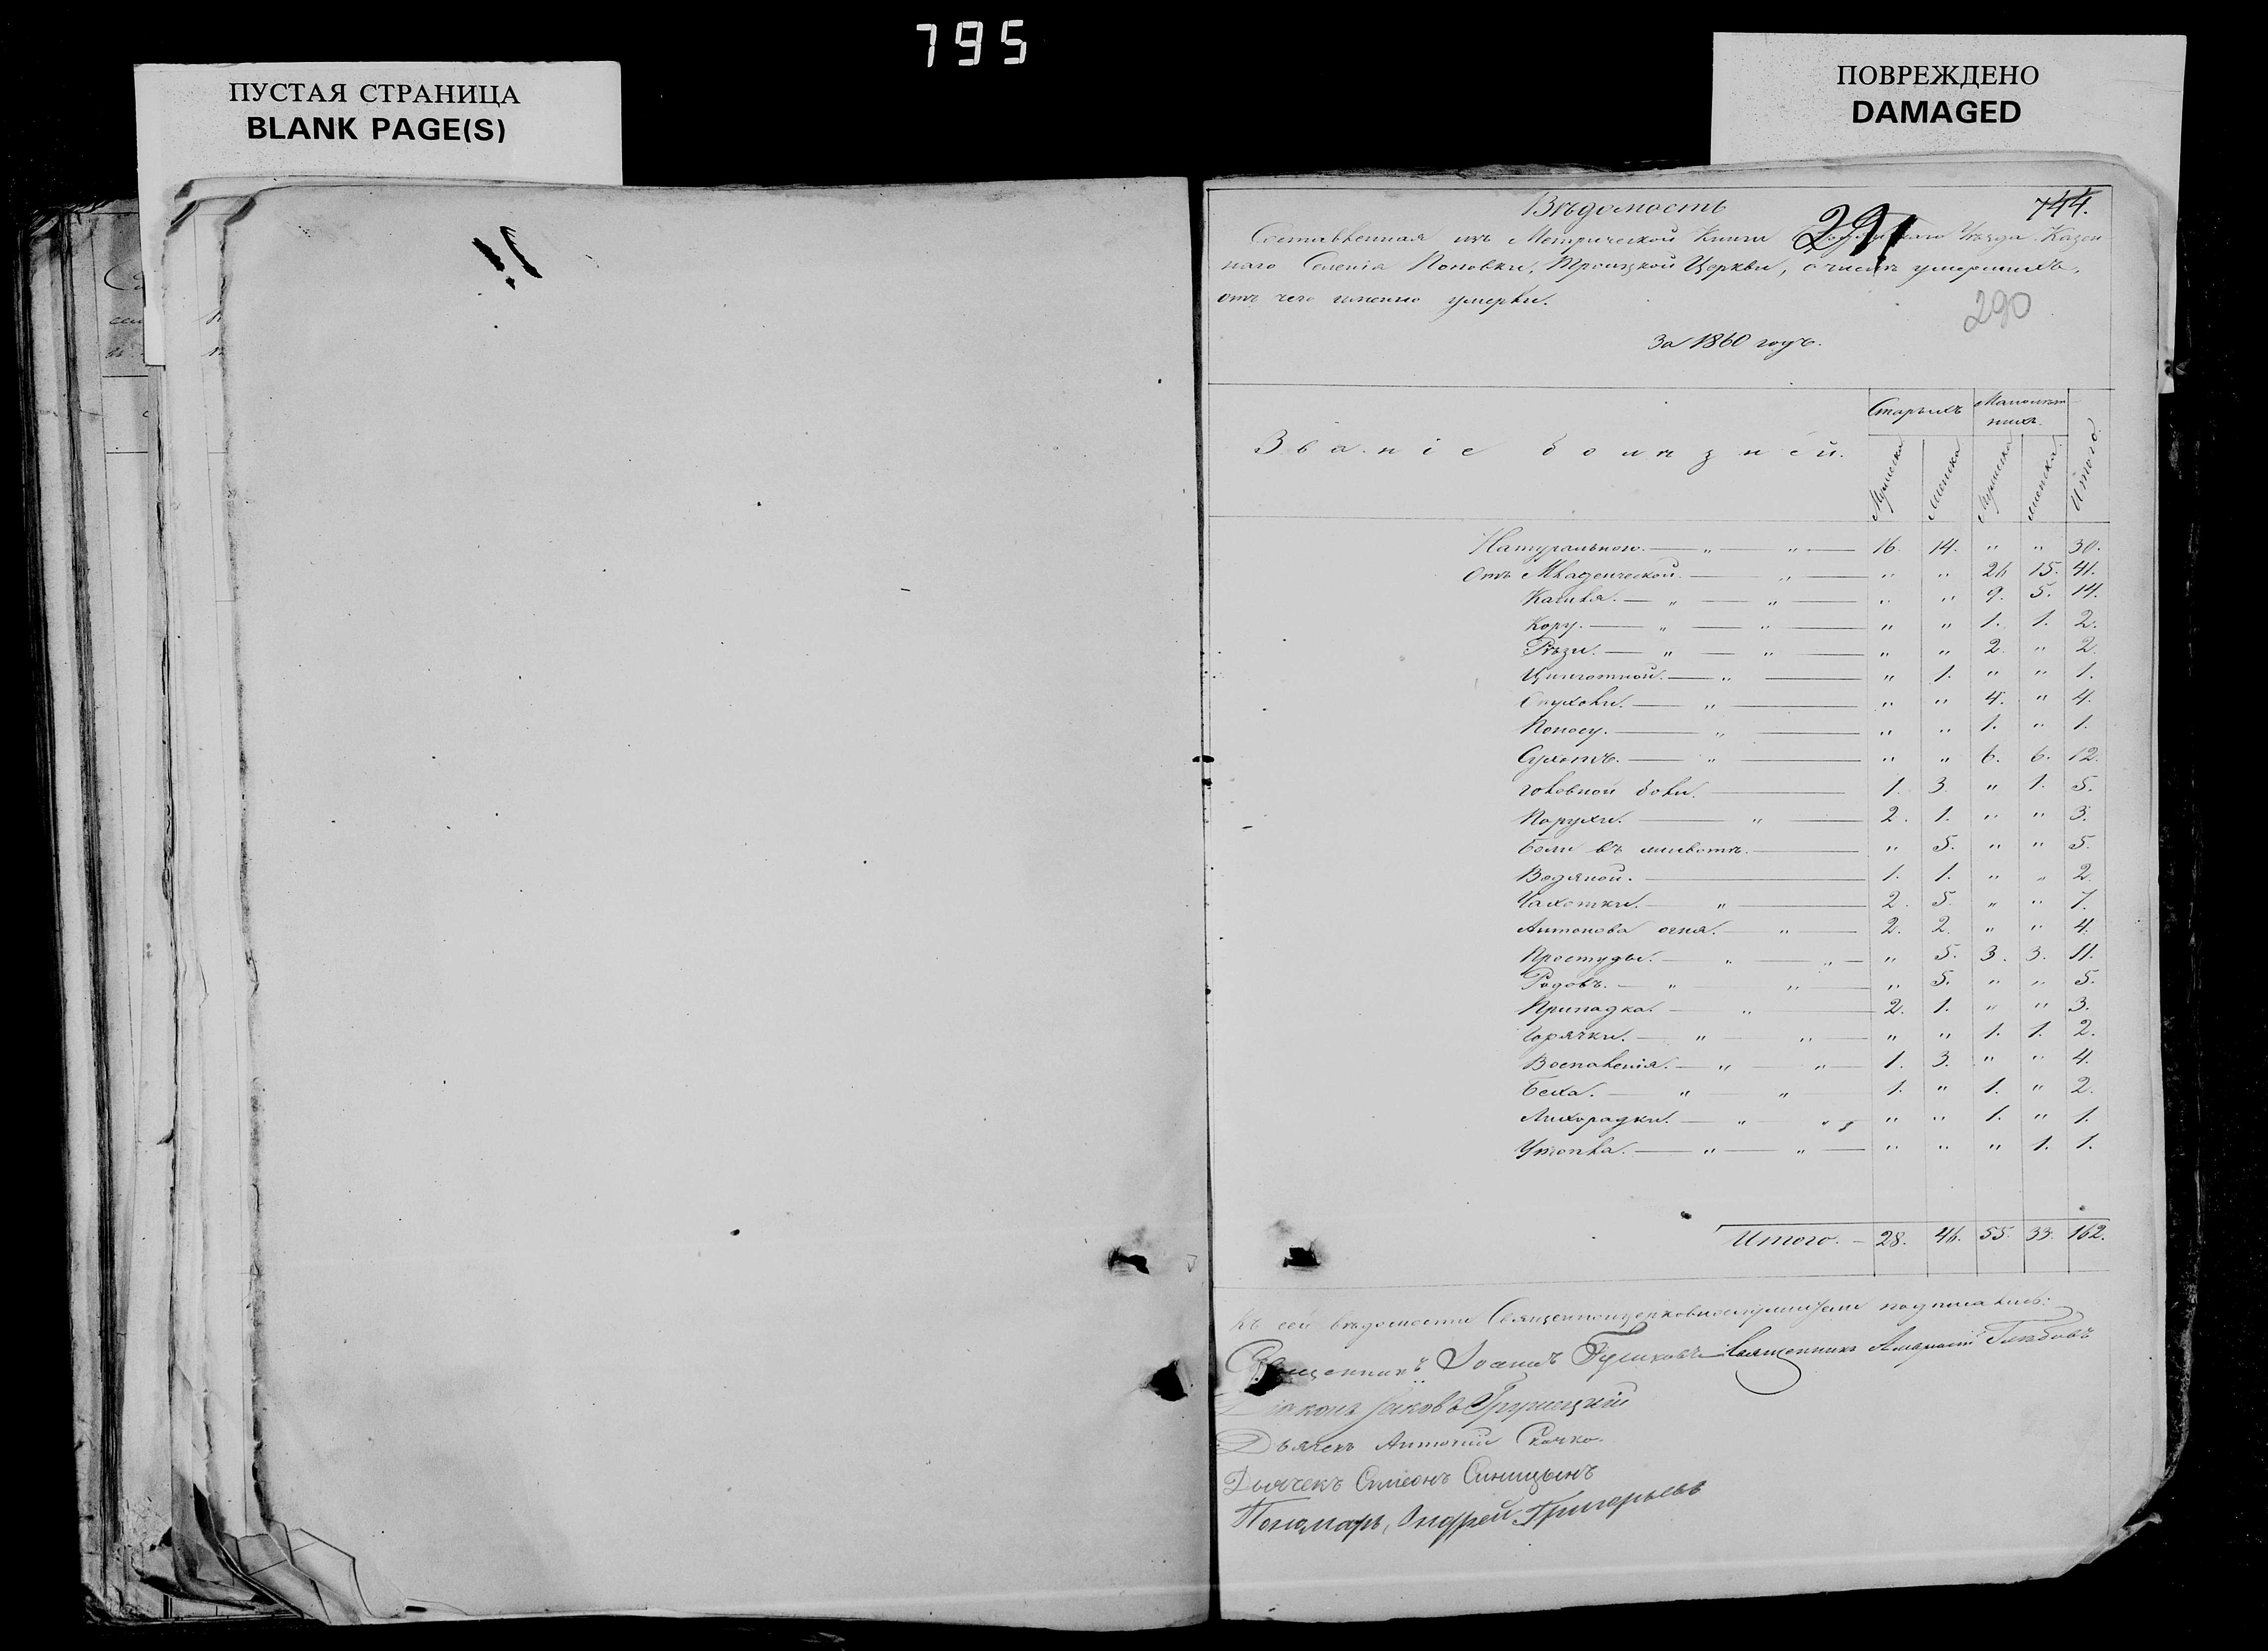 795
ПУСТАЯ СТРАНИЦА
BLANK PAGE(S)
ПОВРЕЖДЕНО
DAMAGED
Вѣдомость
744.
291
Составленная изъ Метрической Книги Уѣзда Казен
наго Селенія Поповки, Троицкой Церкви, о числѣ умершихъ,
отъ чего именно умерли.
290
За 1860 годъ.
Званіе болѣзней.
Старыхъ
Малолѣт
нихъ
Мужеска
Женска
Мужеска
Женска
Итого.
Натуральною. — „ — „ — 16. 14. „ „ 30.
Отъ Младенческой. — „ — „ „ 26 15. 41.
Кашля. — „ — „ — „ „ 9. 5. 14.
Кору. — „ — „ — „ „ 1. 1. 2.
Рѣзи. — „ — „ — „ „ 2. „ 2.
Цинготной. — „ — „ 1. „ „ 1.
Опухоли. — „ — „ „ 4. „ 4.
Поносу. — „ — „ „ 1. „ 1.
Сухотъ. — „ — „ „ 6. 6. 12.
головной боли. — 1. 3. „ 1. 5.
Порухи. — „ — 2. 1. „ „ 3.
Боли въ животѣ. — „ 5. „ „ 5.
Водяной. — 1. 1. „ „ 2.
Чахотки. — „ — 2. 5. „ „ 7.
Антонова огня. — „ — 2. 2. „ „ 4.
Простуды. — „ — „ — „ 5. 3. 3. 11.
Родовъ. — „ — „ — „ 5. „ „ 5.
Припадка. — „ — 2. 1. „ „ 3.
Горячки. — „ — „ — „ „ 1. 1. 2.
Воспаленія. — „ — „ — 1. 3. „ „ 4.
Беха. — „ — „ — 1. „ 1. „ 2.
Лихорадки. — „ — „ „ „ 1. „ 1.
Утопла. — „ — „ — „ „ „ 1. 1.
Итого. — 28. 46. 55. 33. 162.
Къ сей вѣдомости Священноцерковнослужители подписались:
Священникъ Іоаннъ Священникъ Глѣбовъ
Діаконъ Іаковъ Грушецкій
Дьячекъ Антоній Скочко.
Дьячекъ Симеонъ Синицынъ
Пономарь, Андрей Григорьевъ